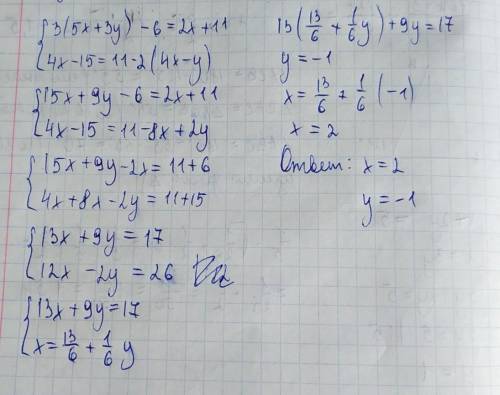 {3(5x+3y)-6=2x+11
4x-15=11-2(4x-y)
{15x+9y-6=2x+11
4x-15=11-8x+2y
{15x+9y-2x=11+6
4x+8x-2y=11+15
{13x+9y=17
12x-2y=26
{13x+9y=17
x=13/6+1/6y
13(13/6+1/6y)+9y=17
y=-1
x=13/6+1/6(-1)
x=2
Ответ: x=2
y=-1